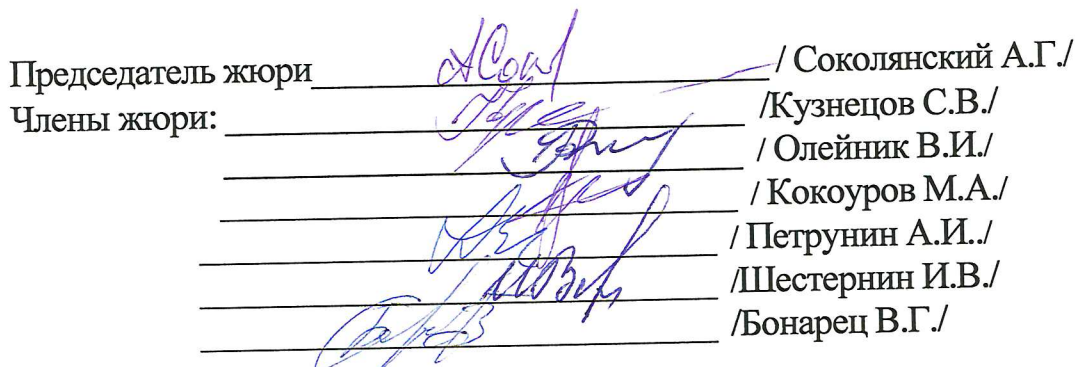 Председатель жюри / Соколянский А.Г./
Члены жюри: /Кузнецов С.В./
/ Олейник В.И./
/ Кокоуров М.А./
/ Петрунин А.И../
/Шестернин И.В./
/Бонарец В.Г./